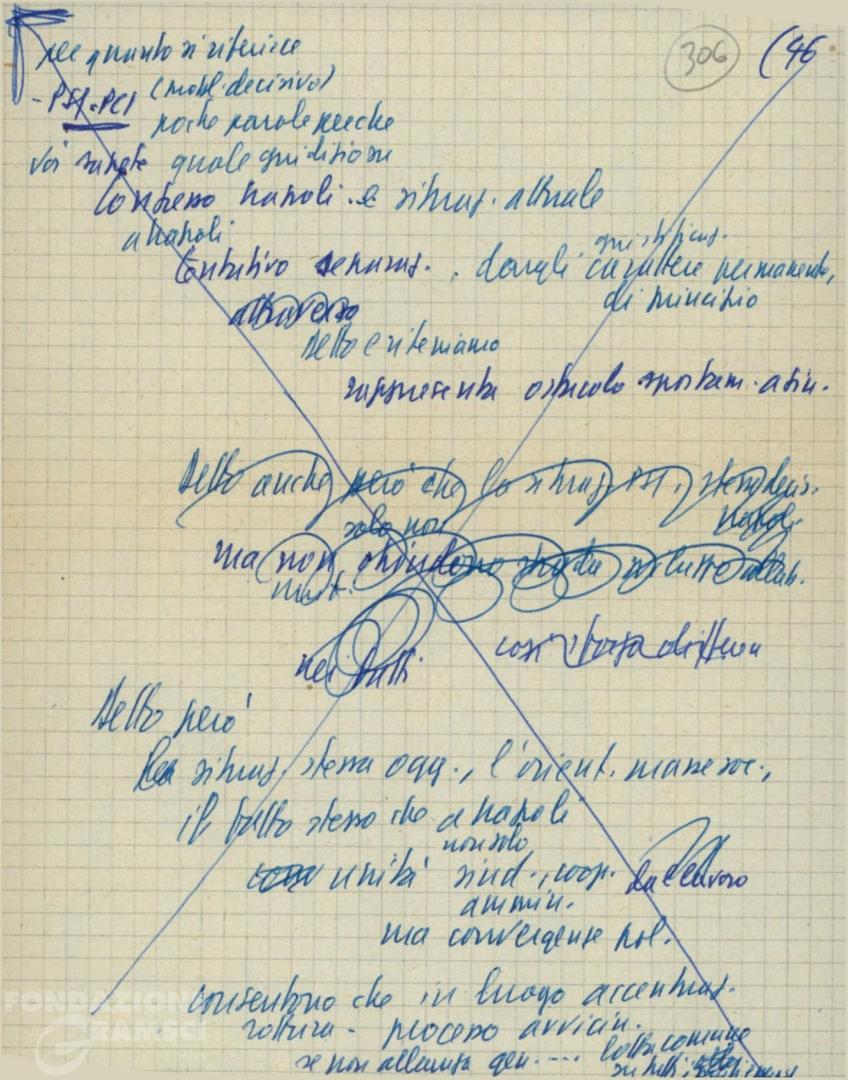 306 (46
per quanto si riferisce
- PSI-PCI (probl. decisivo)
poche parole perche
voi sapete quale giudizio su
Congresso Napoli e situaz. attuale
a Napoli
giustificaz.
tentativo separaz., dargli carattere permanente,
di principio
attraverso
detto e riteniamo
rappresenta ostacolo spostam. a sin.
Detto anche però che la situaz. stesse decis.
Napoli
solo non
ma non chiudono strada
nei fatti
così
Detto però
La situaz. stessa ogg., l'orient. masse soc.,
il fatto stesso che a Napoli
non solo
unità sind., coop.
ammin.
ma convergenze pol.
consentono che in luogo accentuaz.
rottura - processo avvicin.
se non alleanza gen. .... lotta comune
su tutti
FONDAZIONE
GRAMSCI